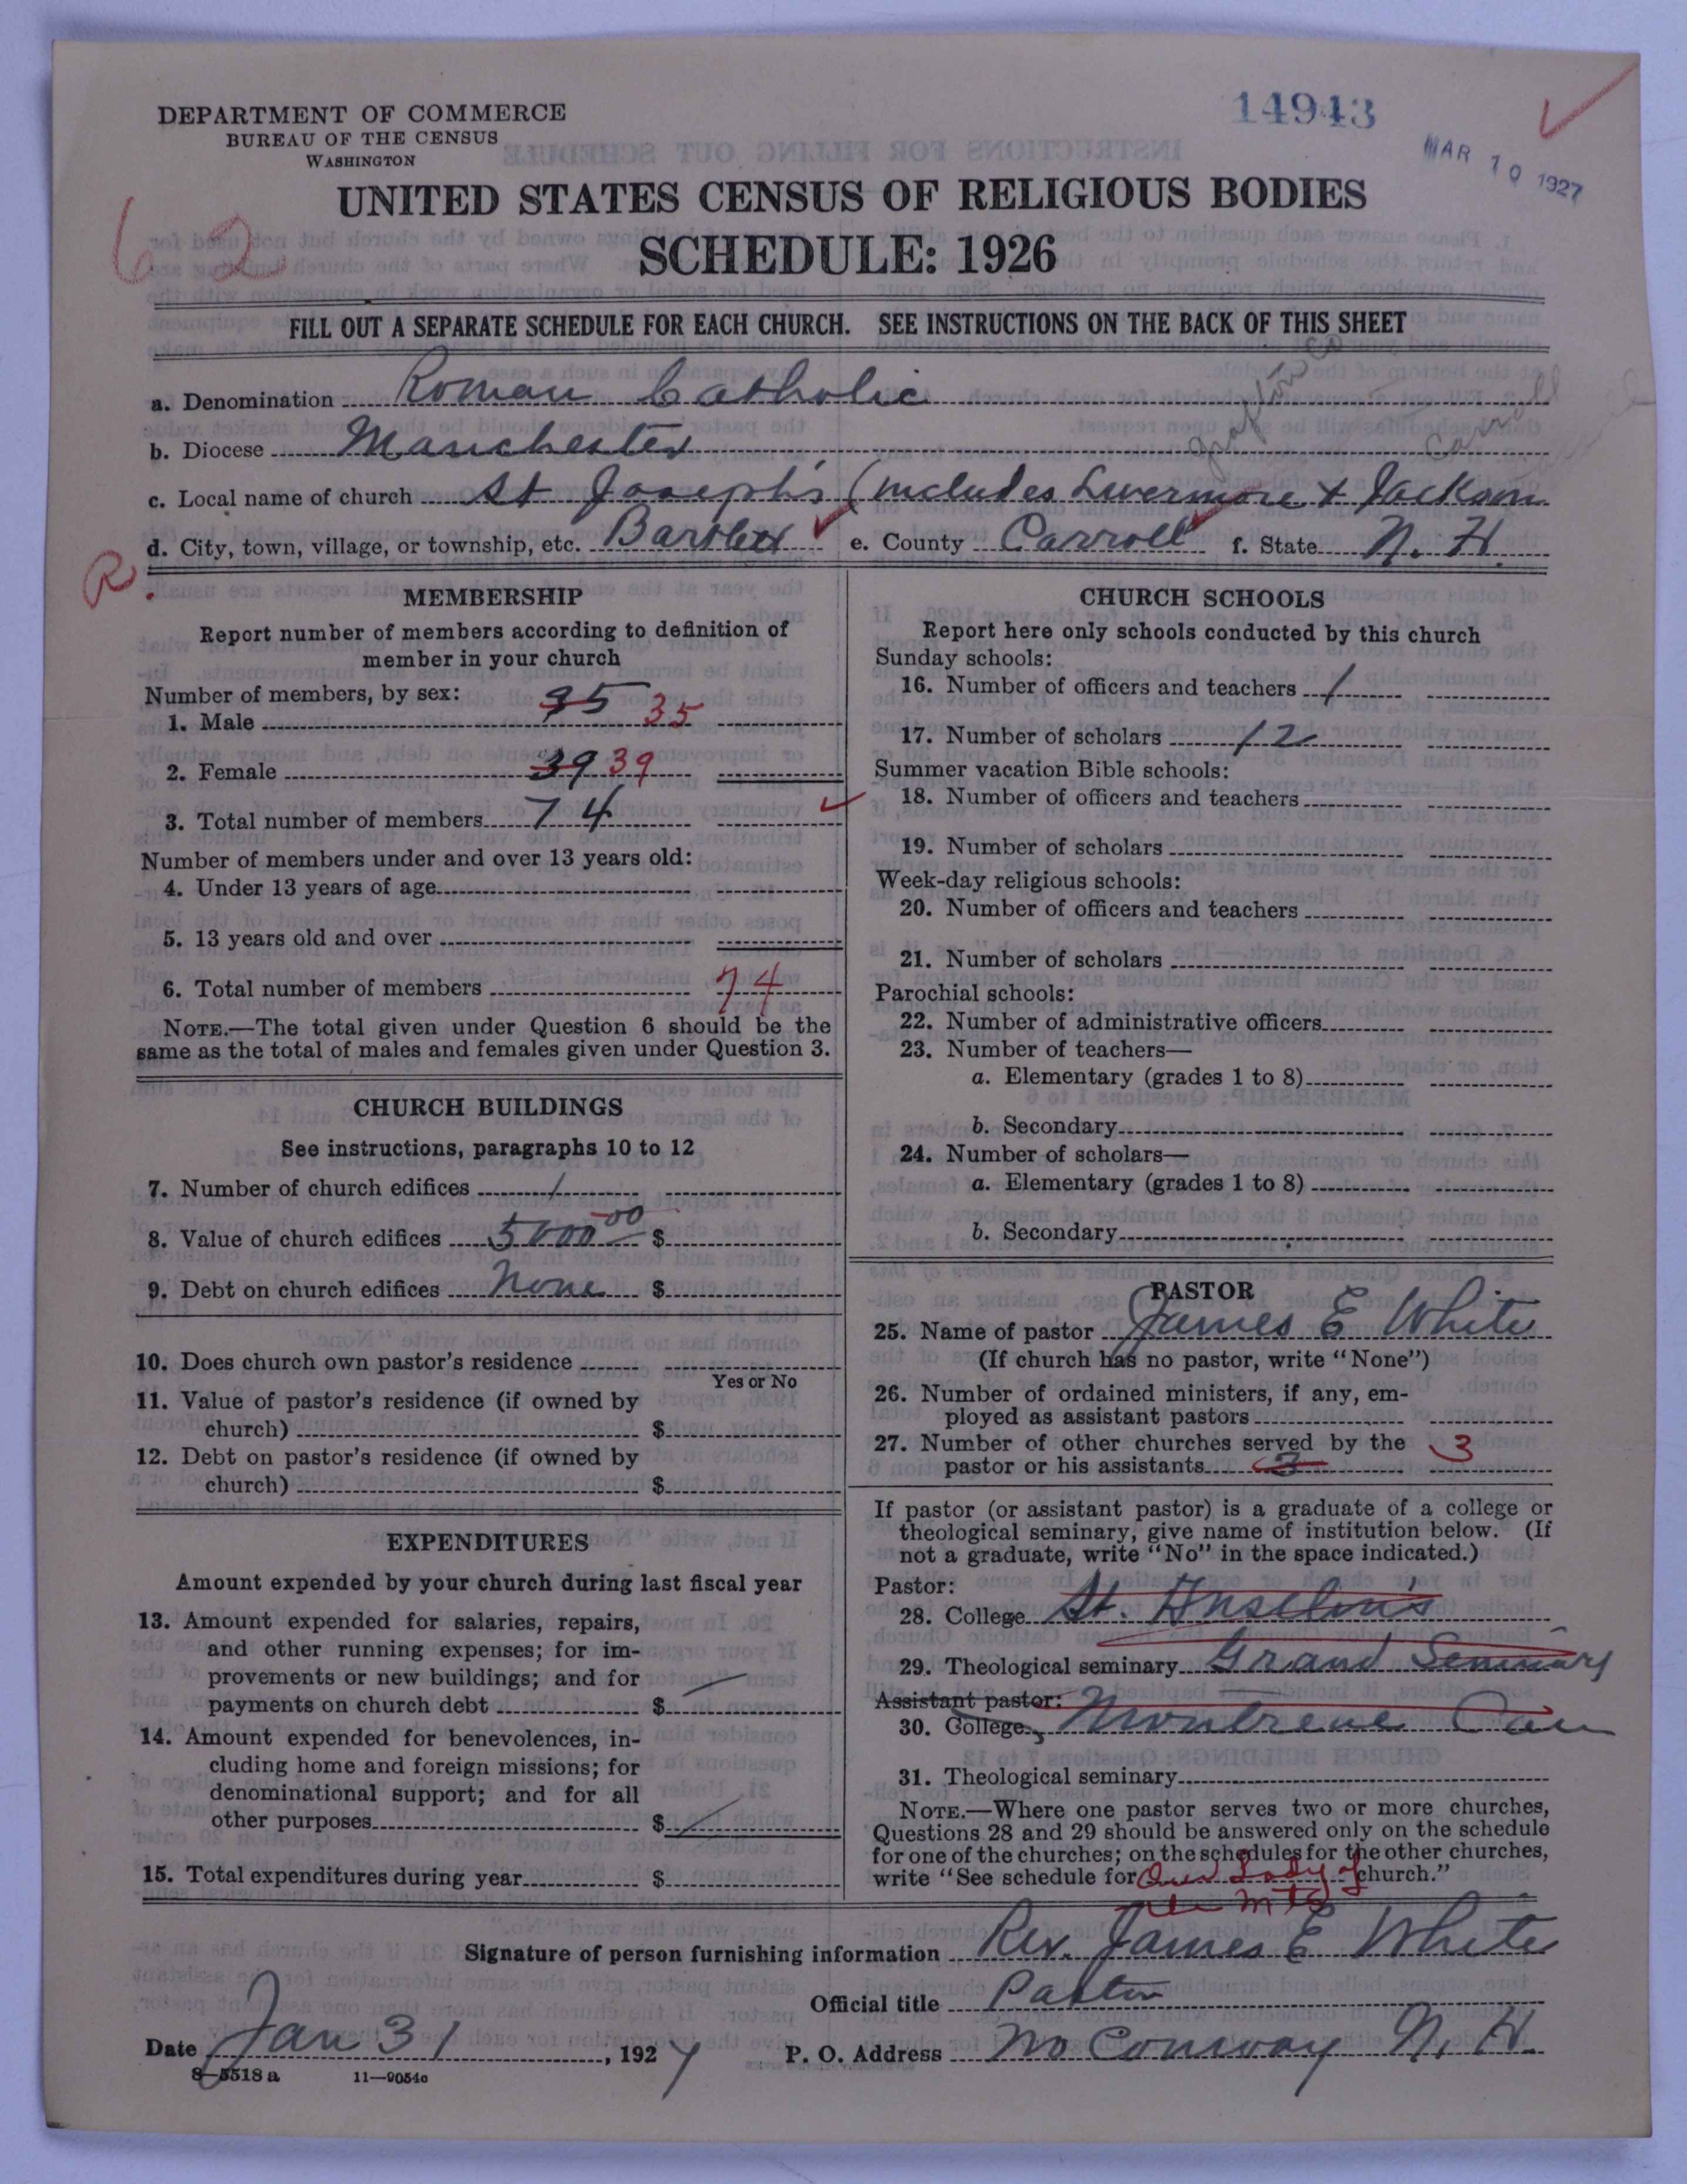 DEPARTMENT OF COMMERCE
BUREAU OF THE CENSUS
WASHINGTON
14943
MAR 10 1927
62
UNITED STATES CENSUS OF RELIGIOUS BODIES
SCHEDULE: 1926
FILL OUT A SEPARATE SCHEDULE FOR EACH CHURCH. SEE INSTRUCTIONS ON THE BACK OF THIS SHEET
Grafton Co
Carroll
a. Denomination Roman Catholic
b. Diocese Manchester
c. Local name of church St Joseph's (includes Livermore & Jackson
d. City, town, village, or township, etc. Bartlett e. County Carroll f. State N. H.
R.
MEMBERSHIP
Report number of members according to definition of
member in your church
Number of members, by sex:
1. Male 35 35
2. Female 39 39
3. Total number of members 74
Number of members under and over 13 years old:
4. Under 13 years of age
5. 13 years old and over
6. Total number of members 74
NOTE.—The total given under Question 6 should be the
same as the total of males and females given under Question 3.
CHURCH BUILDINGS
See instructions, paragraphs 10 to 12
7. Number of church edifices 1
8. Value of church edifices 5000 00 $
9. Debt on church edifices None $
10. Does church own pastor's residence
Yes or No
11. Value of pastor's residence (if owned by
church) $
12. Debt on pastor's residence (if owned by
church) $
EXPENDITURES
Amount expended by your church during last fiscal year
13. Amount expended for salaries, repairs,
and other running expenses; for im-
provements or new buildings; and for
payments on church debt $
14. Amount expended for benevolences, in-
cluding home and foreign missions; for
denominational support; and for all
other purposes $
15. Total expenditures during year $
CHURCH SCHOOLS
Report here only schools conducted by this church
Sunday schools:
16. Number of officers and teachers 1
17. Number of scholars 12
Summer vacation Bible schools:
18. Number of officers and teachers
19. Number of scholars
Week-day religious schools:
20. Number of officers and teachers
21. Number of scholars
Parochial schools:
22. Number of administrative officers
23. Number of teachers—
a. Elementary (grades 1 to 8)
b. Secondary
24. Number of scholars—
a. Elementary (grades 1 to 8)
b. Secondary
PASTOR
25. Name of pastor James E White
(If church has no pastor, write "None")
26. Number of ordained ministers, if any, em-
ployed as assistant pastors
27. Number of other churches served by the 3
pastor or his assistants
If pastor (or assistant pastor) is a graduate of a college or
theological seminary, give name of institution below. (If
not a graduate, write "No" in the space indicated.)
Pastor:
28. College St. Anselm's
29. Theological seminary Grand Seminary
Assistant pastor:
30. College Can
31. Theological seminary
NOTE.—Where one pastor serves two or more churches,
Questions 28 and 29 should be answered only on the schedule
for one of the churches; on the schedules for the other churches,
write "See schedule for Our Lady of church."
the Mts
Signature of person furnishing information Rev. James E White
Official title Pastor
Date Jan 31, 1927 P. O. Address No Conway N. H.
8-5518 a 11—9054c